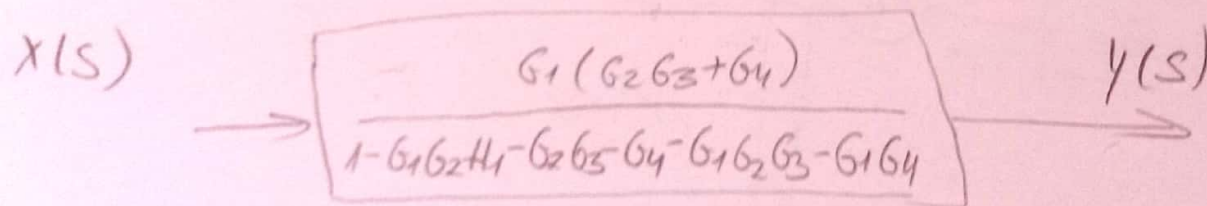 X(S)
G1(G2G3+G4)
y(S)
1-G1G2H1-G2G3-G4-G1G2G3-G1G4